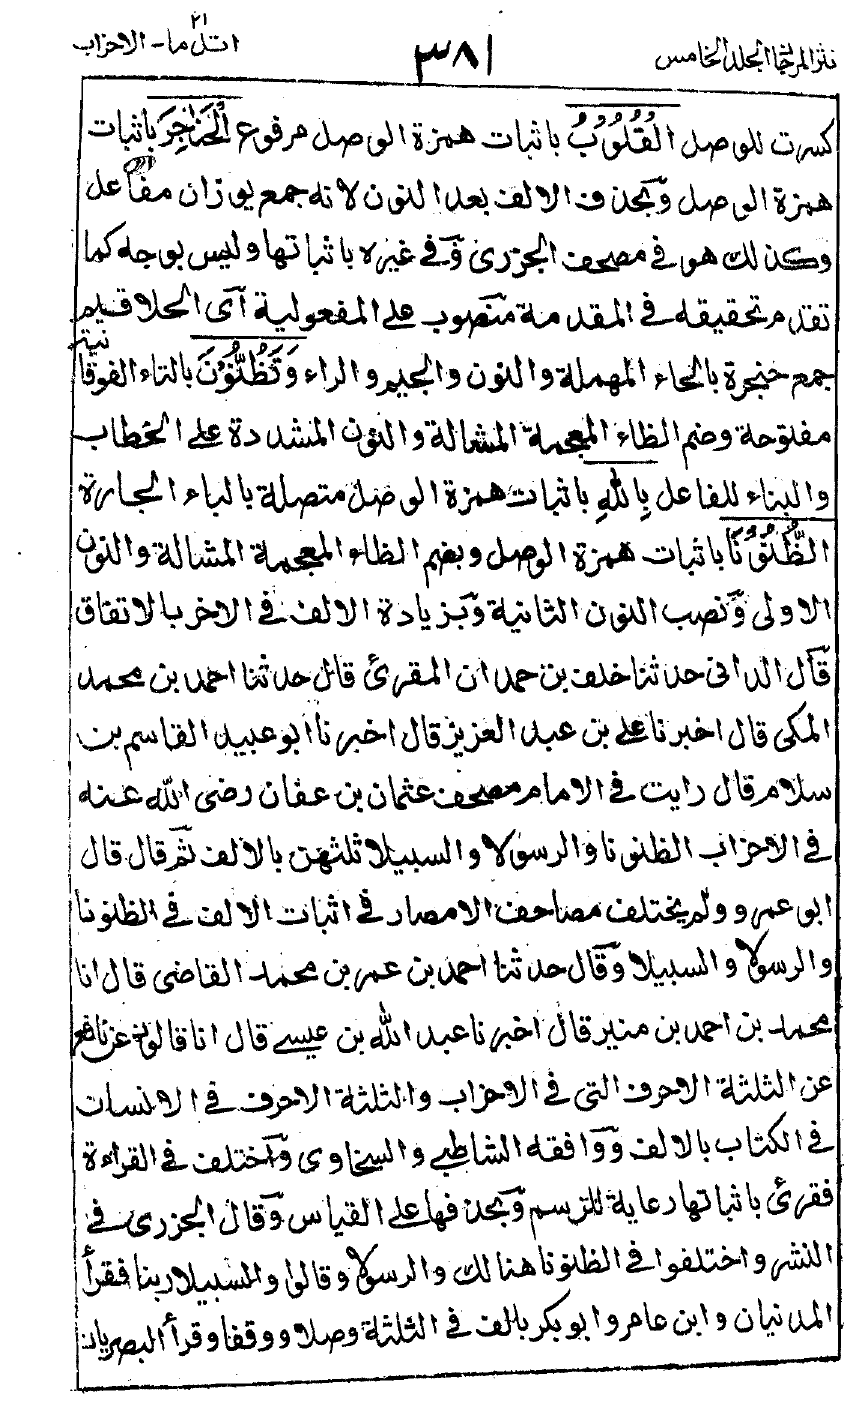 نثر المرجان المجلد الخامس
٣٨١
اتل ما - الاحزاب
٢١
كسرت للوصل الْقُلُوْبُ باثبات همزة الوصل مرفوع الْحَنَاجِرَ باثبات
همزة الوصل وبحذف الالف بعد النون لانه جمع يوزان مفاعل
وكذلك هو في مصحف الجزرى وفي غيره باثباتها وليس بوجه كما
تقدم تحقيقه في المقدمة منصوب على المفعولية آى الحلاقيم
جمع حنجرة بالحاء المهملة والنون والجيم والراء وَتَظُنُّوْنَ بالتاء الفوقا
نية
مفتوحة وضم الظاء المعجمة المشالة والنون المشددة على الخطاب
والبناء للفاعل بِاللهِ باثبات همزة الوصل متصلة بالباء الجارة
الظُّنُوْنَا باثبات همزة الوصل وبضم الظاء المعجمة المشالة والنون
الاولى ونصب النون الثانية وبزيادة الالف في الاخر بالاتفاق
قال الدانى حدثنا خلف بن حمدان المقرئ قال حدثنا احمد بن محمد
المكى قال اخبرنا على بن عبد العزيز قال اخبرنا ابو عبيد القاسم بن
سلام قال رايت في الامام مصحف عثمان بن عفان رضى الله عنه
في الاحزاب الظنونا والرسولا والسبيلا ثلثهن بالالف ثم قال قال
ابو عمرو ولم يختلف مصاحف الامصار في اثبات الالف في الظنونا
والرسولا والسبيلا وقال حدثنا احمد بن عمر بن محمد القاضى قال انا
محمد بن احمد بن منير قال اخبرنا عبد الله بن عيسے قال انا قالون عن نافع
عن الثلثة الاحرف التى في الاحزاب والثلثة الاحرف في الانسان
في الكتاب بالالف ووافقه الشاطبى والسخاوى واختلف في القراءة
فقرئ باثباتها رعاية للرسم وبحذفها على القياس وقال الجزرى في
النشر واختلفوا في الظنونا هنالك والرسولا وقالوا والسبيلا ربنا فقرأ
المدنيان وابن عامر وابو بكر بالف في الثلثة وصلا ووقفا وقرأ البصريان